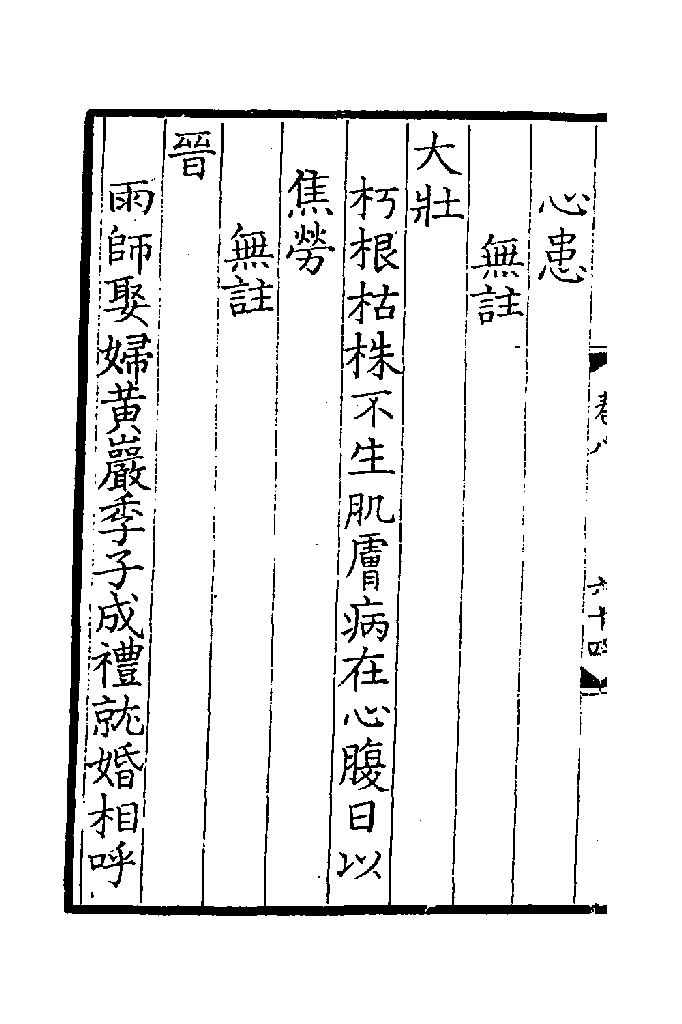 心患
無註
大壯
朽根枯株不生肌膚病在心腹日以
焦勞
無註
晉
雨師娶婦黃巖季子成禮就婚相呼
卷八
六十四